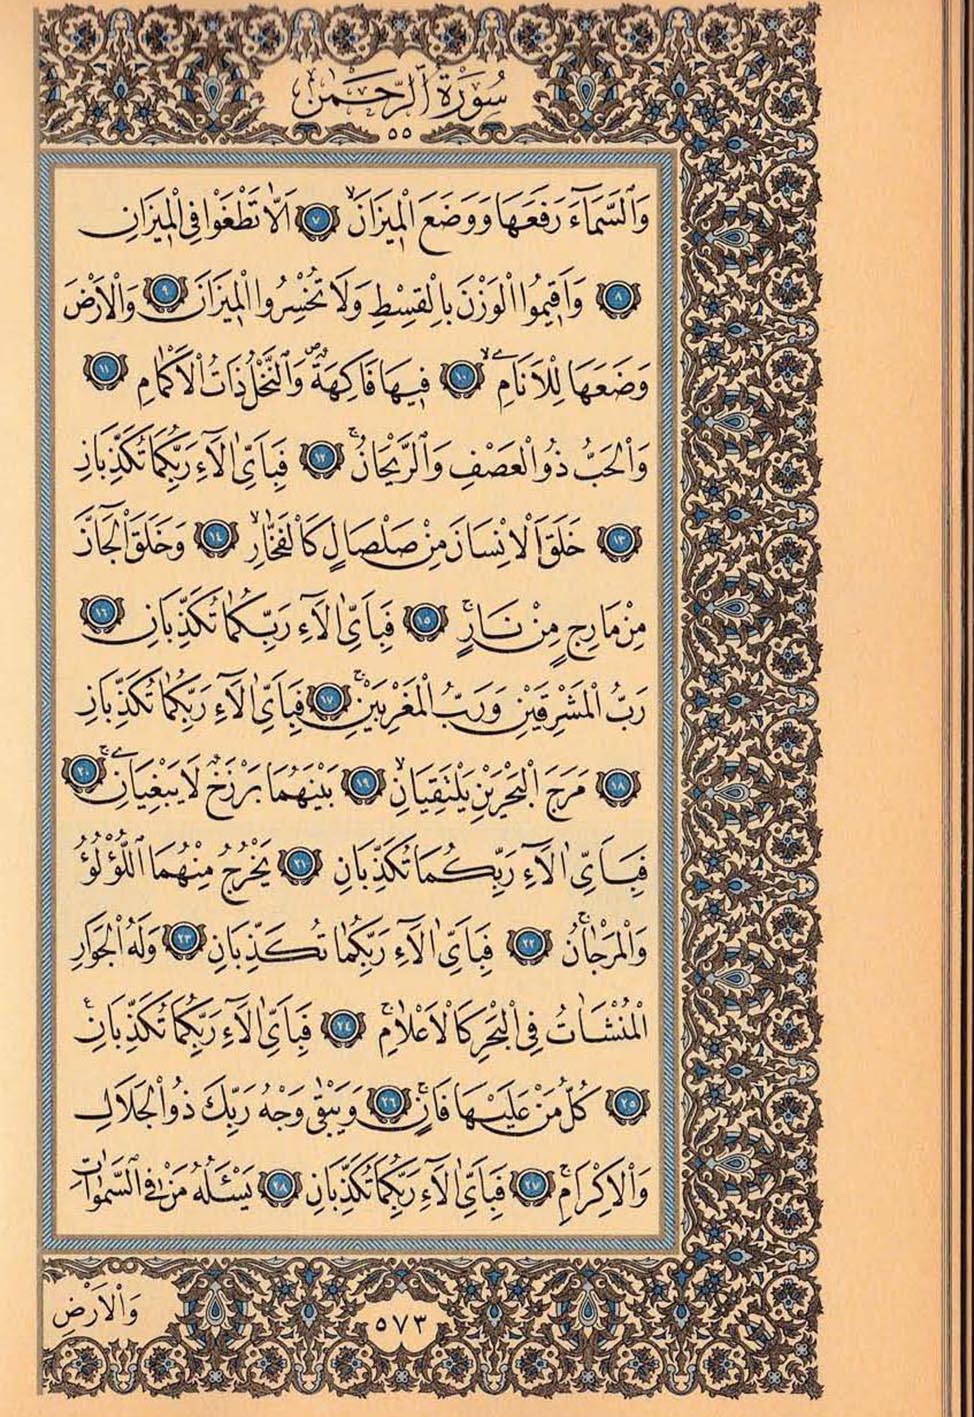 سُورَةُ الرَّحْمٰنِ
٥٥
وَالسَّمَٓاءَ رَفَعَهَا وَوَضَعَ الْمٖيزَانَۙ ﴿٧﴾ اَلَّا تَطْغَوْا فِي الْمٖيزَانِ
﴿٨﴾ وَاَقٖيمُوا الْوَزْنَ بِالْقِسْطِ وَلَا تُخْسِرُوا الْمٖيزَانَ ﴿٩﴾ وَالْاَرْضَ
وَضَعَهَا لِلْاَنَامِۙ ﴿١٠﴾ فٖيهَا فَاكِهَةٌۖ وَالنَّخْلُ ذَاتُ الْاَكْمَامِ ﴿١١﴾
وَالْحَبُّ ذُو الْعَصْفِ وَالرَّيْحَانُۚ ﴿١٢﴾ فَبِاَيِّ اٰلَٓاءِ رَبِّكُمَا تُكَذِّبَانِ
﴿١٣﴾ خَلَقَ الْاِنْسَانَ مِنْ صَلْصَالٍ كَالْفَخَّارِۙ ﴿١٤﴾ وَخَلَقَ الْجَٓانَّ
مِنْ مَارِجٍ مِنْ نَارٍۚ ﴿١٥﴾ فَبِاَيِّ اٰلَٓاءِ رَبِّكُمَا تُكَذِّبَانِ ﴿١٦﴾
رَبُّ الْمَشْرِقَيْنِ وَرَبُّ الْمَغْرِبَيْنِۚ ﴿١٧﴾ فَبِاَيِّ اٰلَٓاءِ رَبِّكُمَا تُكَذِّبَانِ
﴿١٨﴾ مَرَجَ الْبَحْرَيْنِ يَلْتَقِيَانِۙ ﴿١٩﴾ بَيْنَهُمَا بَرْزَخٌ لَا يَبْغِيَانِۚ ﴿٢٠﴾
فَبِاَيِّ اٰلَٓاءِ رَبِّكُمَا تُكَذِّبَانِ ﴿٢١﴾ يَخْرُجُ مِنْهُمَا اللُّؤْلُؤُ
وَالْمَرْجَانُۚ ﴿٢٢﴾ فَبِاَيِّ اٰلَٓاءِ رَبِّكُمَا تُكَذِّبَانِ ﴿٢٣﴾ وَلَهُ الْجَوَارِ
الْمُنْشَاٰتُ فِي الْبَحْرِ كَالْاَعْلَامِۚ ﴿٢٤﴾ فَبِاَيِّ اٰلَٓاءِ رَبِّكُمَا تُكَذِّبَانِ۟
﴿٢٥﴾ كُلُّ مَنْ عَلَيْهَا فَانٍۚ ﴿٢٦﴾ وَيَبْقٰى وَجْهُ رَبِّكَ ذُو الْجَلَالِ
وَالْاِكْرَامِۚ ﴿٢٧﴾ فَبِاَيِّ اٰلَٓاءِ رَبِّكُمَا تُكَذِّبَانِ ﴿٢٨﴾ يَسْـَٔلُهُ مَنْ فِي السَّمٰوَاتِ
وَالْاَرْضِ
٥٧٣